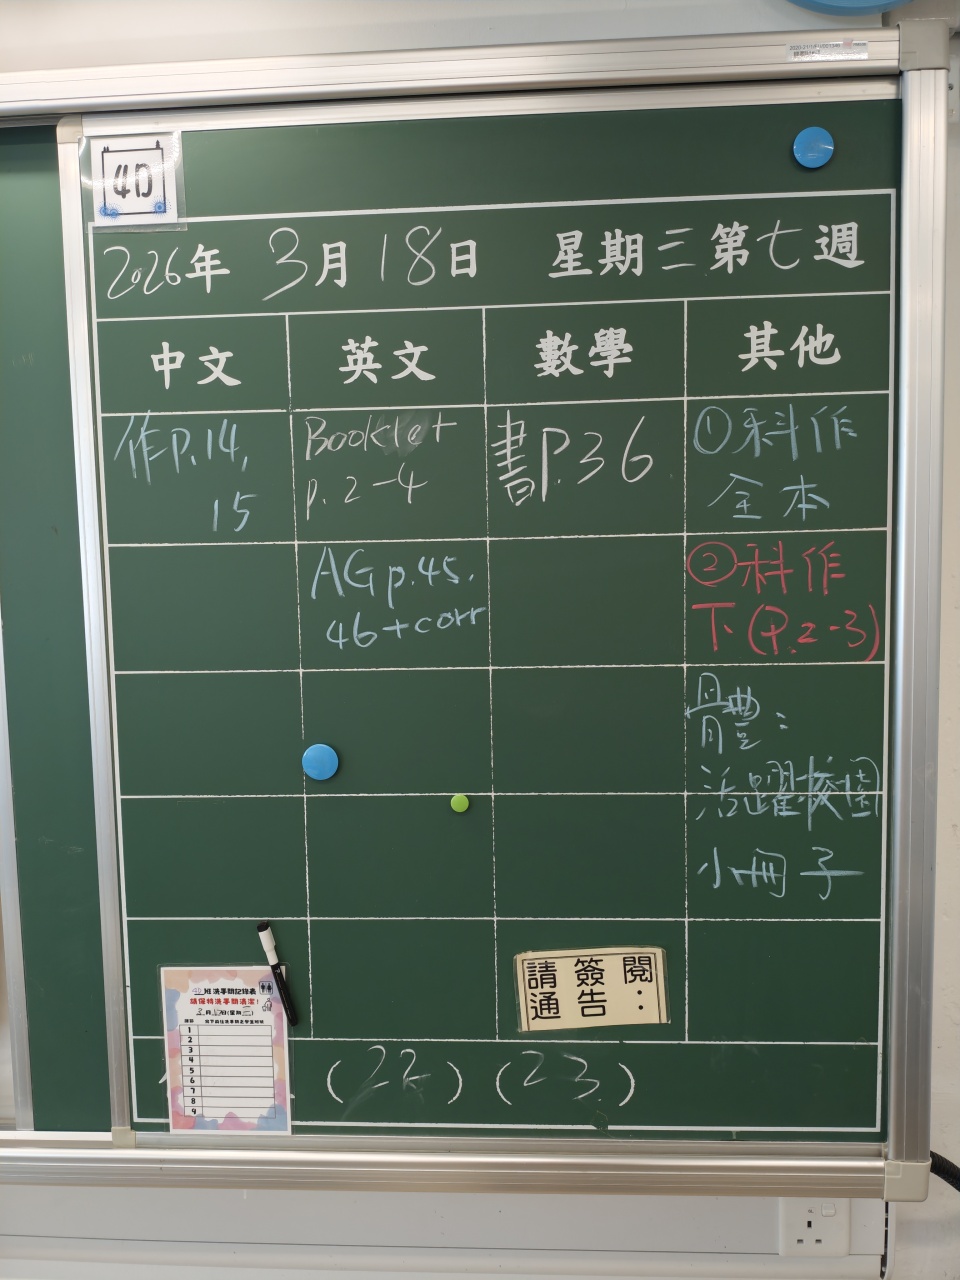 4D
2026年 3月18日 星期三第七週
中文 英文 數學 其他
作P.14,
15
Booklet
p.2-4
書P.36
①科作
全本
AG p.45,
46+corr
②科作
下(P.2-3)
體:
活躍校園
小冊子
請簽閱
通告:
4D班洗手間記錄表
請保持洗手間清潔!
1
2
3
4
5
6
7
8
9
(22) (23)